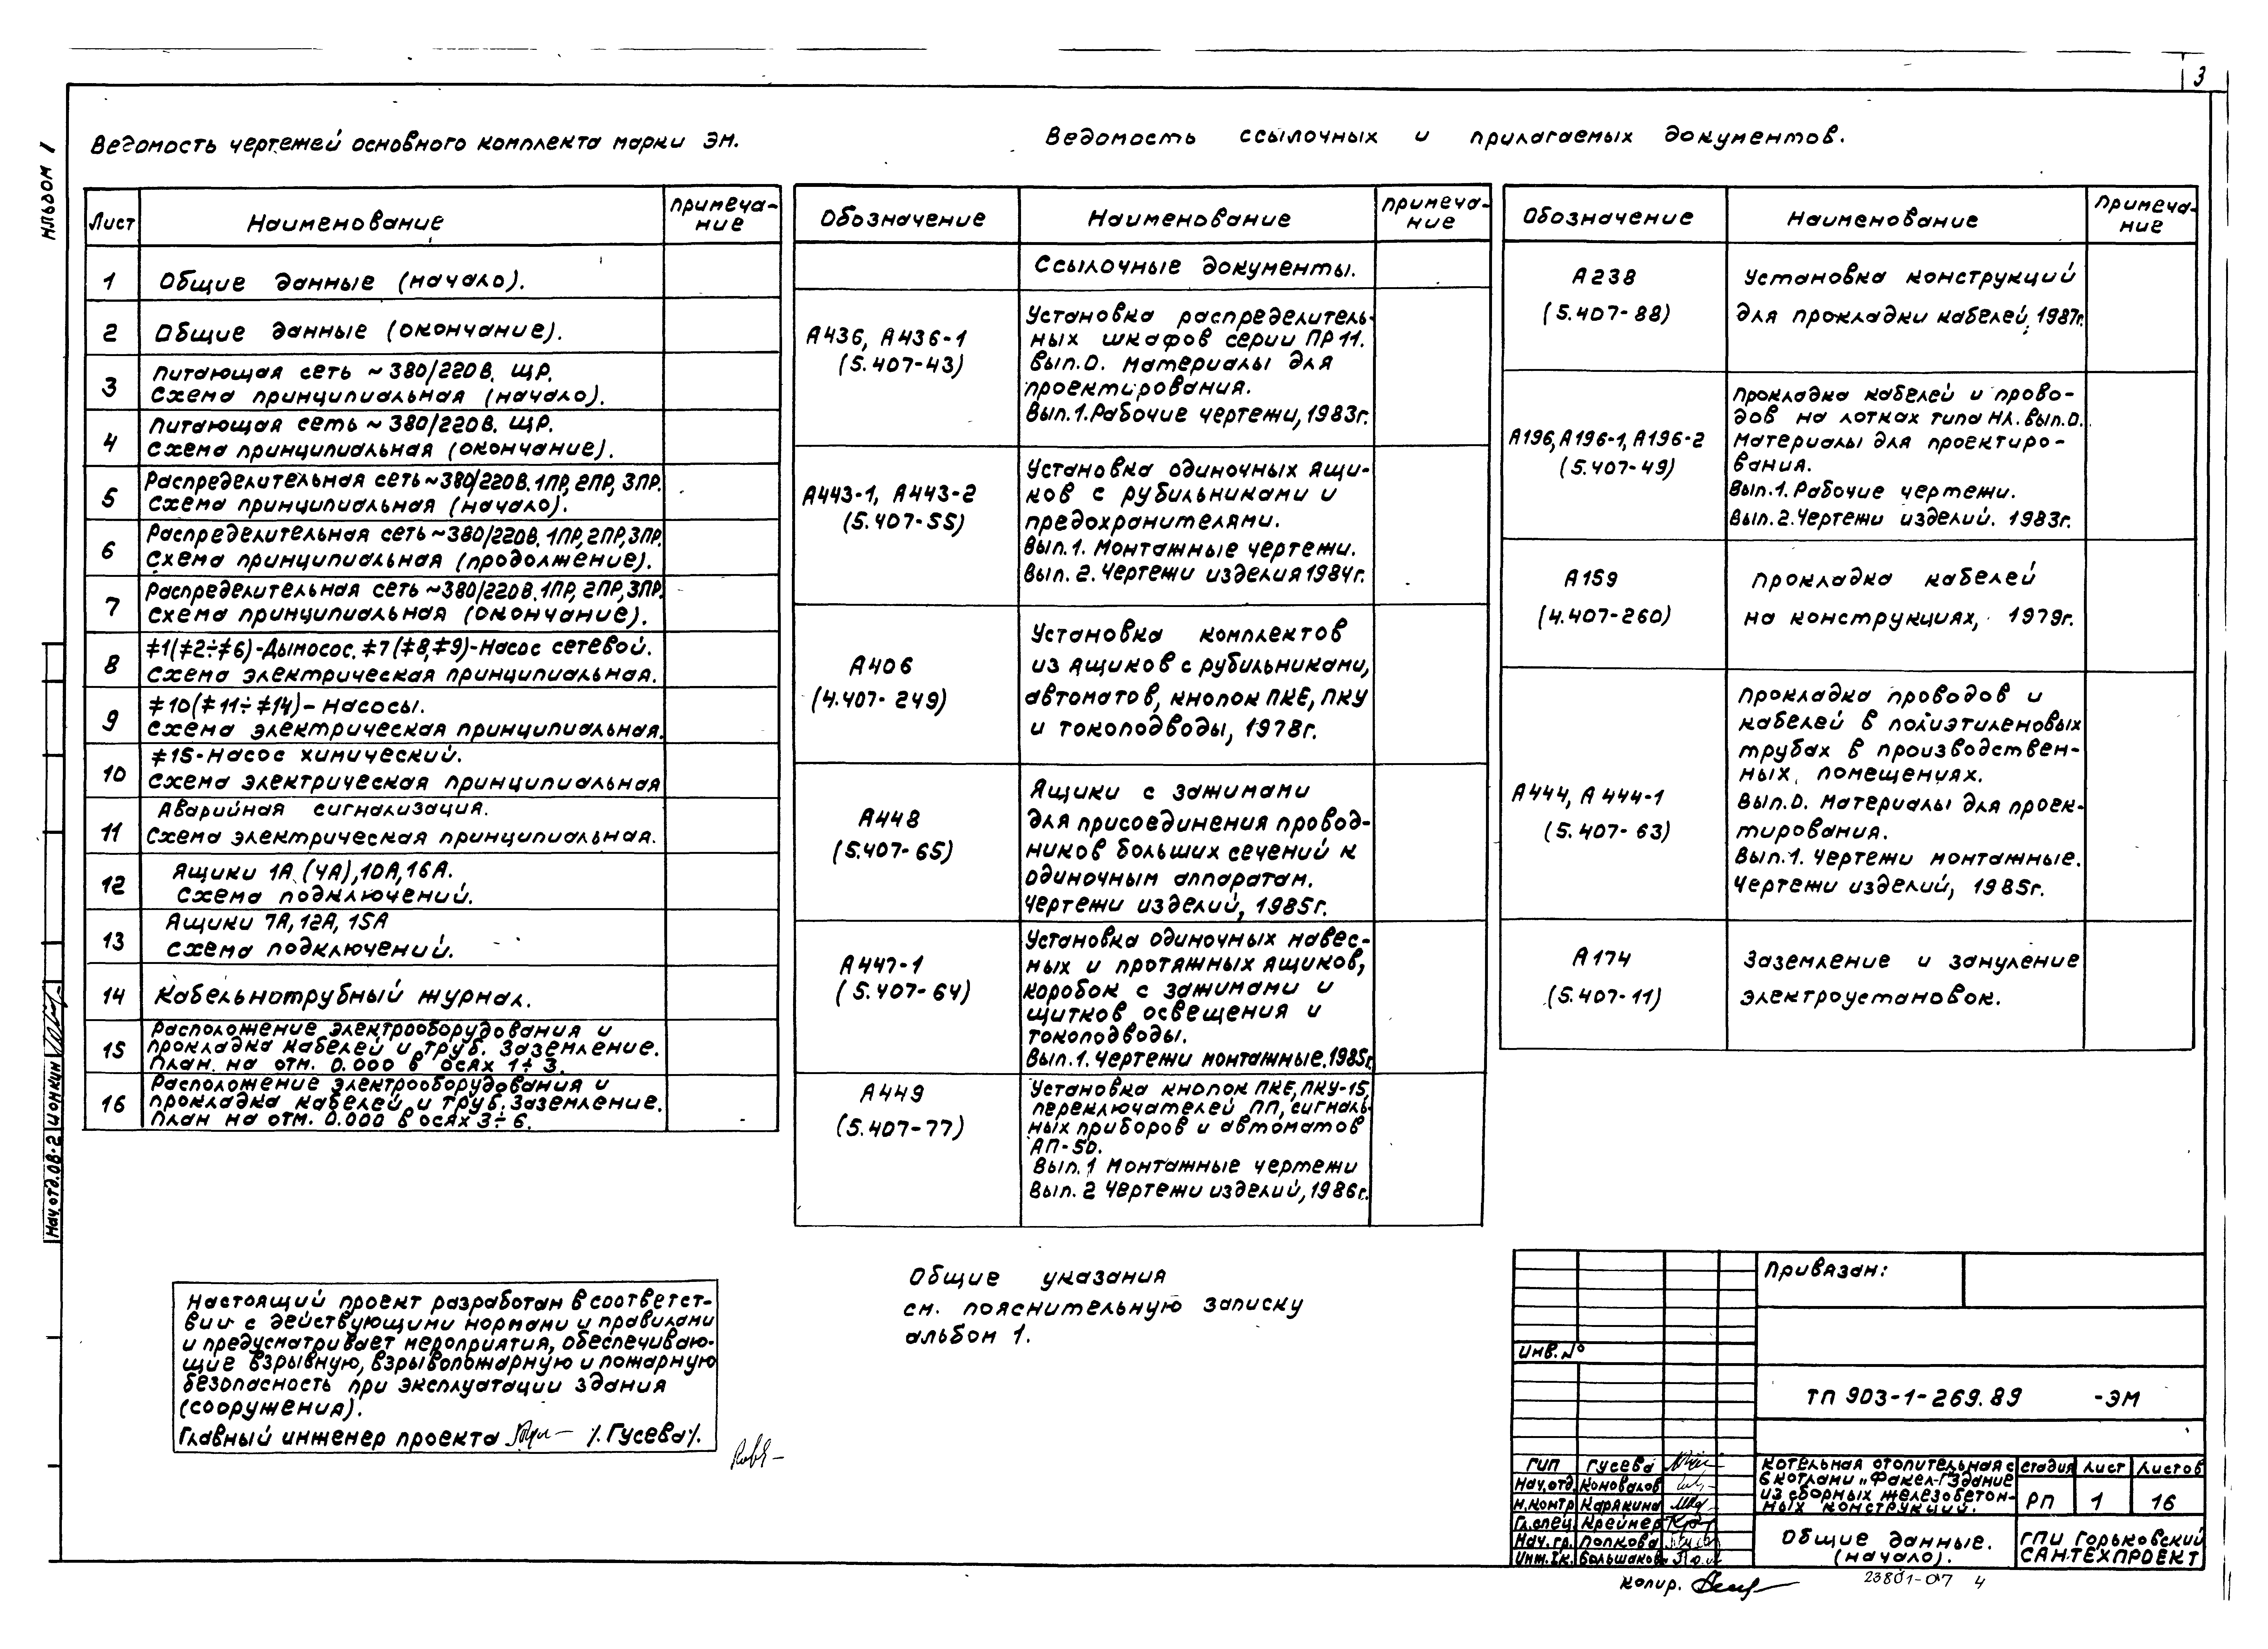 3
Альбом 1
Ведомость чертежей основного комплекта марки ЭМ.
Лист
Наименование
Примеча-
ние
1
Общие данные (начало).
2
Общие данные (окончание).
3
Питающая сеть ~380/220В. ЩР.
Схема принципиальная (начало).
4
Питающая сеть ~380/220В. ЩР.
Схема принципиальная (окончание).
5
Распределительная сеть ~380/220В. 1ПР, 2ПР, 3ПР.
Схема принципиальная (начало).
6
Распределительная сеть ~380/220В. 1ПР, 2ПР, 3ПР.
Схема принципиальная (продолжение).
7
Распределительная сеть ~380/220В. 1ПР, 2ПР, 3ПР.
Схема принципиальная (окончание).
8
≠1(≠2÷≠6)-Дымосос. ≠7(≠8,≠9)-Насос сетевой.
Схема электрическая принципиальная.
9
≠10(≠11÷≠14)-Насосы.
Схема электрическая принципиальная.
10
≠15-Насос химический.
Схема электрическая принципиальная
11
Аварийная сигнализация.
Схема электрическая принципиальная.
12
Ящики 1А (4А), 10А, 16А.
Схема подключений.
13
Ящики 7А, 12А, 15А
Схема подключений.
14
Кабельнотрубный журнал.
15
Расположение электрооборудования и
прокладка кабелей и труб. Заземление.
План на отм. 0.000 в осях 1÷3.
16
Расположение электрооборудования и
прокладка кабелей и труб. Заземление.
План на отм. 0.000 в осях 3÷6.
Ведомость ссылочных и прилагаемых документов.
Обозначение
Наименование
Примеча-
ние
Ссылочные документы.
А436, А436-1
(5.407-43)
Установка распределитель-
ных шкафов серии ПР11.
Вып.0. Материалы для
проектирования.
Вып.1. Рабочие чертежи, 1983г.
А443-1, А443-2
(5.407-55)
Установка одиночных ящи-
ков с рубильниками и
предохранителями.
Вып.1. Монтажные чертежи.
Вып. 2. Чертежи изделия 1984г.
А406
(4.407-249)
Установка комплектов
из ящиков с рубильниками,
автоматов, кнопок ПКЕ, ПКУ
и токоподводы, 1978г.
А448
(5.407-65)
Ящики с зажимами
для присоединения провод-
ников больших сечений к
одиночным аппаратам.
Чертежи изделий, 1985г.
А447-1
(5.407-64)
Установка одиночных навес-
ных и протяжных ящиков,
коробок с зажимами и
щитков освещения и
токоподводы.
Вып.1. Чертежи монтажные. 1985г.
А449
(5.407-77)
Установка кнопок ПКЕ, ПКУ-15,
переключателей ПП, сигналь-
ных приборов и автоматов
АП-50.
Вып.1 Монтажные чертежи
Вып. 2 Чертежи изделий, 1986г.
Обозначение
Наименование
Примеча-
ние
А238
(5.407-88)
Установка конструкций
для прокладки кабелей, 1987г.
А196, А196-1, А196-2
(5.407-49)
Прокладка кабелей и прово-
дов на лотках типа НЛ. Вып.0.
Материалы для проектиро-
вания.
Вып.1. Рабочие чертежи.
Вып.2. Чертежи изделий. 1983г.
А159
(4.407-260)
Прокладка кабелей
на конструкциях, 1979г.
А444, А444-1
(5.407-63)
Прокладка проводов и
кабелей в полиэтиленовых
трубах в производствен-
ных помещениях.
Вып.0. Материалы для проек-
тирования.
Вып.1. Чертежи монтажные.
Чертежи изделий, 1985г.
А174
(5.407-11)
Заземление и зануление
электроустановок.
Нач. отд. ОВ-2 Ионкин
Настоящий проект разработан в соответст-
вии с действующими нормами и правилами
и предусматривает мероприятия, обеспечиваю-
щие взрывную, взрывопожарную и пожарную
безопасность при эксплуатации здания
(сооружения).
Главный инженер проекта /.Гусева/.
Общие указания
см. пояснительную записку
альбом 1.
Привязан:
Инв. №
ТП 903-1-269.89 -ЭМ
ГИП Гусева
Нач. отд. Коновалов
Н.контр Карякина
Гл.спец. Крейнер
Нач. гр. Попкова
Инж. 2к. Большаков
Котельная отопительная с
6 котлами „Факел-Г" Здание
из сборных железобетон-
ных конструкций.
Стадия Лист Листов
РП 1 16
Общие данные.
(начало).
ГПИ Горьковский
САНТЕХПРОЕКТ
Копир.
23801-07 4